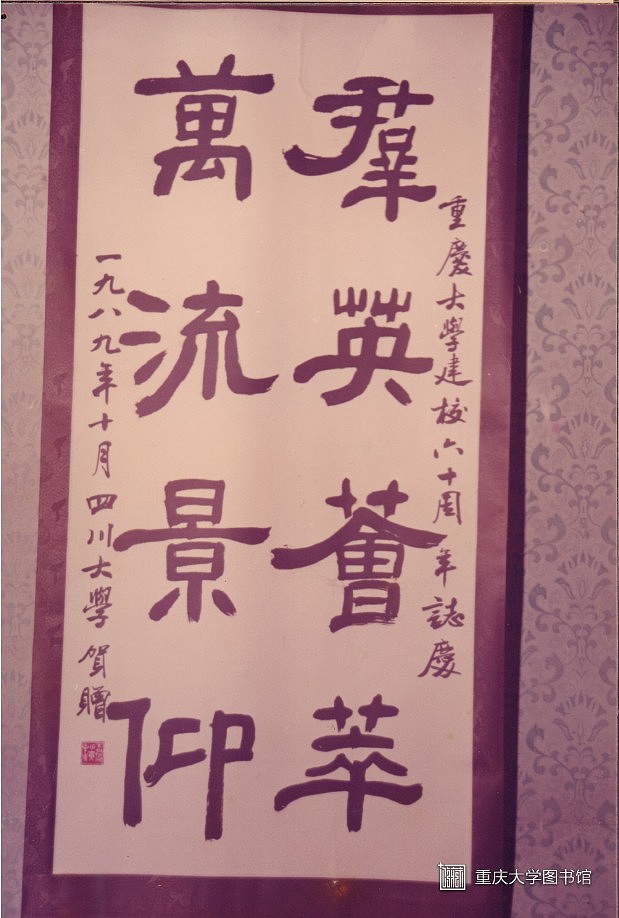 重慶大學建校六十周年誌慶
羣英薈萃
萬流景仰
一九八九年十月四川大學賀贈
重庆大学图书馆